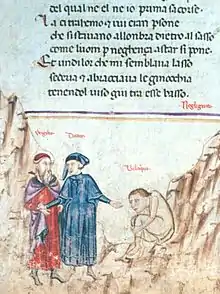 del qual ne el ne io prima sacorse.
La ci trahemo ⁊ iui eran psone
che si stauano allonbra dietro al sasso
come luom p negligença astar si pone.
Et un di lor che mi semblaua lasso
sedeua ⁊ abracciaua le ginocchia
tenendol uiso giu tra esse basso.
Dantes